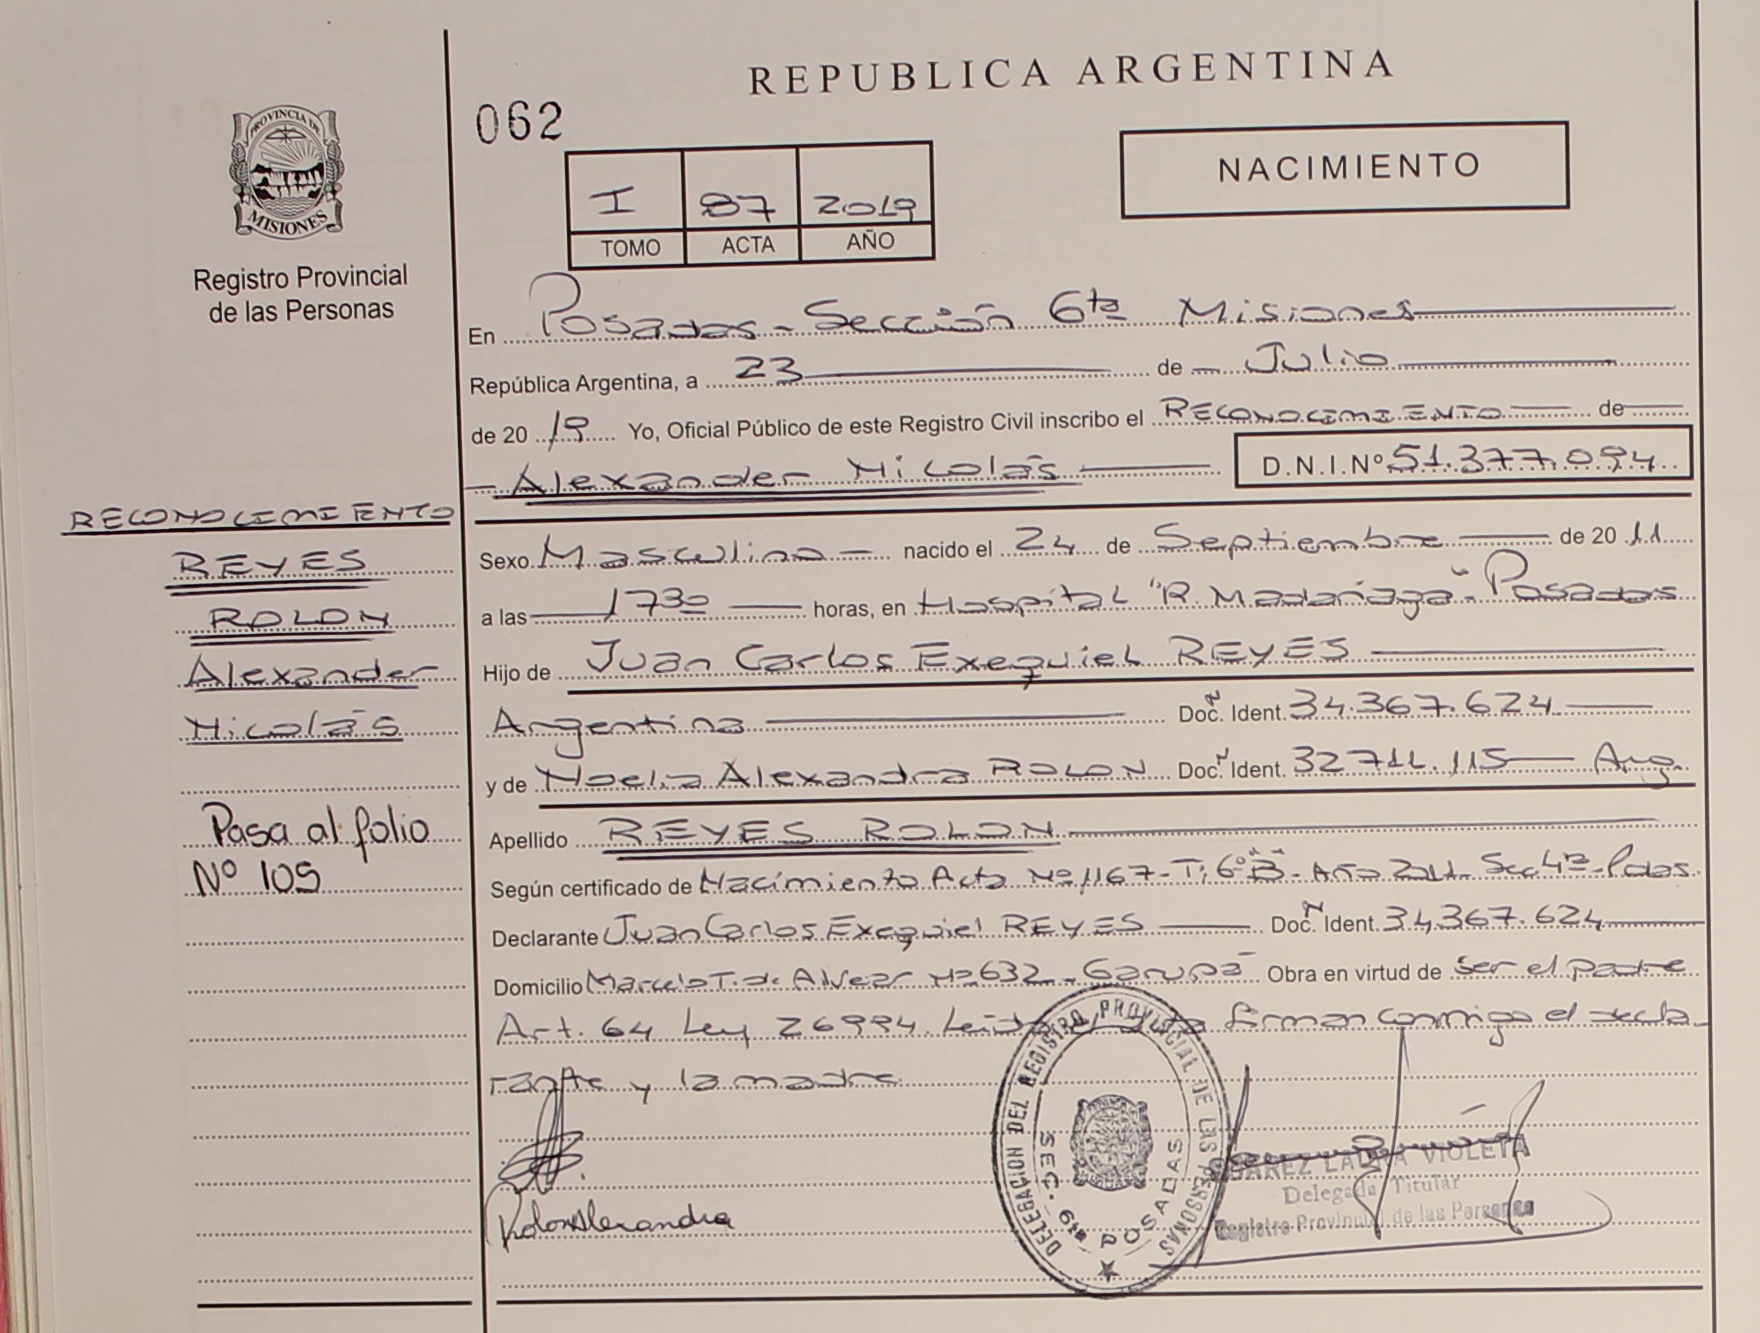 REPUBLICA ARGENTINA
062
NACIMIENTO
I 87 2019
TOMO ACTA AÑO
PROVINCIA DE
MISIONES
Registro Provincial
de las Personas
En Posadas - Sección 6ta Misiones
República Argentina, a 23 de Julio
de 20 19 Yo, Oficial Público de este Registro Civil inscribo el RECONOCIMIENTO de
Alexander Nicolás D.N.I.Nº 51.377.094
RECONOCIMIENTO
REYES
ROLON
Alexander
Nicolás
Pasa al folio
Nº 105
Sexo Masculino nacido el 24 de Septiembre de 20 11
a las 17 30 horas, en Hospital "R. Madariaga". Posadas
Hijo de Juan Carlos Exequiel REYES
Argentina Doc. Ident. 34.367.624
y de Noelia Alexandra ROLON Doc. Ident. 32711.115 Arg.
Apellido REYES ROLON
Según certificado de Nacimiento Acta Nº 1167 - T: 6º B - Año 2011 Secc 4ta - Pdas.
Declarante Juan Carlos Exequiel REYES Doc. Ident. 34.367.624
Domicilio Marcelo T. de Alvear Nº 632 - Garupá Obra en virtud de ser el padre
Art. 64 Ley 26994 firman conmigo el decla
rante y la madre
Rolon Alexandra
DELEGACION DEL REGISTRO PROVINCIAL DE LAS PERSONAS
SEC. 6ta POSADAS
LAURA VIOLETA
Delegada Titular
Registro Provincial de las Personas